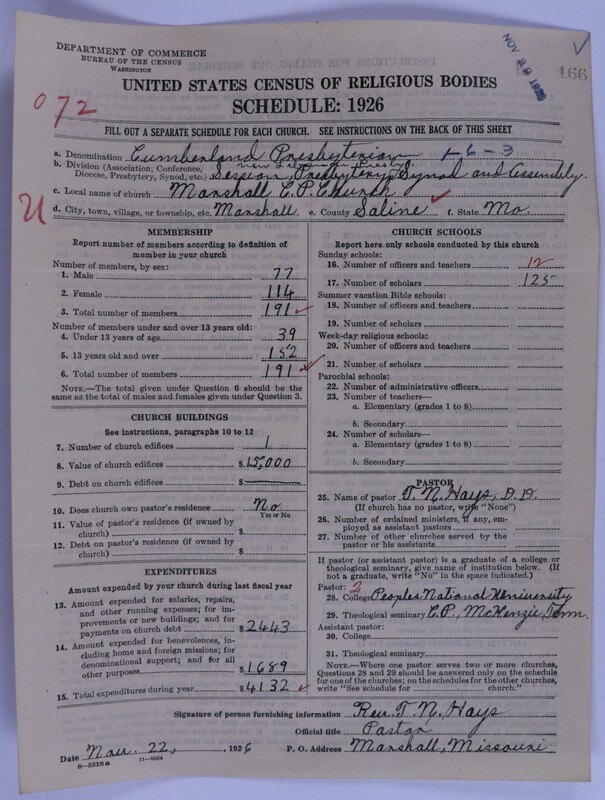 DEPARTMENT OF COMMERCE
BUREAU OF THE CENSUS
WASHINGTON
NOV 29 1926
166
UNITED STATES CENSUS OF RELIGIOUS BODIES
SCHEDULE: 1926
072
FILL OUT A SEPARATE SCHEDULE FOR EACH CHURCH. SEE INSTRUCTIONS ON THE BACK OF THIS SHEET
a. Denomination Cumberland Presbyterian 1-6-3
b. Division (Association, Conference, Diocese, Presbytery, Synod, etc.) Session, Presbytery, Synod and Assembly.
c. Local name of church Marshall C.P. Church
U
d. City, town, village, or township, etc. Marshall e. County Saline f. State Mo.
MEMBERSHIP
Report number of members according to definition of member in your church
Number of members, by sex:
1. Male 77
2. Female 114
3. Total number of members 191
Number of members under and over 13 years old:
4. Under 13 years of age 39
5. 13 years old and over 152
6. Total number of members 191
NOTE.—The total given under Question 6 should be the same as the total of males and females given under Question 3.
CHURCH BUILDINGS
See instructions, paragraphs 10 to 12
7. Number of church edifices 1
8. Value of church edifices $15,000
9. Debt on church edifices $
10. Does church own pastor's residence No
Yes or No
11. Value of pastor's residence (if owned by church) $
12. Debt on pastor's residence (if owned by church) $
EXPENDITURES
Amount expended by your church during last fiscal year
13. Amount expended for salaries, repairs, and other running expenses; for improvements or new buildings; and for payments on church debt $2443
14. Amount expended for benevolences, including home and foreign missions; for denominational support; and for all other purposes $1689
15. Total expenditures during year $4132
CHURCH SCHOOLS
Report here only schools conducted by this church
Sunday schools:
16. Number of officers and teachers 12
17. Number of scholars 125
Summer vacation Bible schools:
18. Number of officers and teachers
19. Number of scholars
Week-day religious schools:
20. Number of officers and teachers
21. Number of scholars
Parochial schools:
22. Number of administrative officers
23. Number of teachers—
a. Elementary (grades 1 to 8)
b. Secondary
24. Number of scholars—
a. Elementary (grades 1 to 8)
b. Secondary
PASTOR
25. Name of pastor T. M. Hays, D.D.
(If church has no pastor, write "None")
26. Number of ordained ministers, if any, employed as assistant pastors
27. Number of other churches served by the pastor or his assistants
If pastor (or assistant pastor) is a graduate of a college or theological seminary, give name of institution below. (If not a graduate, write "No" in the space indicated.)
Pastor: 2
28. College Peoples National University
29. Theological seminary C.P., McKenzie, Tenn.
Assistant pastor:
30. College
31. Theological seminary
NOTE.—Where one pastor serves two or more churches, Questions 28 and 29 should be answered only on the schedule for one of the churches; on the schedules for the other churches, write "See schedule for church."
Signature of person furnishing information Rev. T. M. Hays
Official title Pastor
Date Nov. 22, 1926 P. O. Address Marshall, Missouri
8—5518a 11—6664